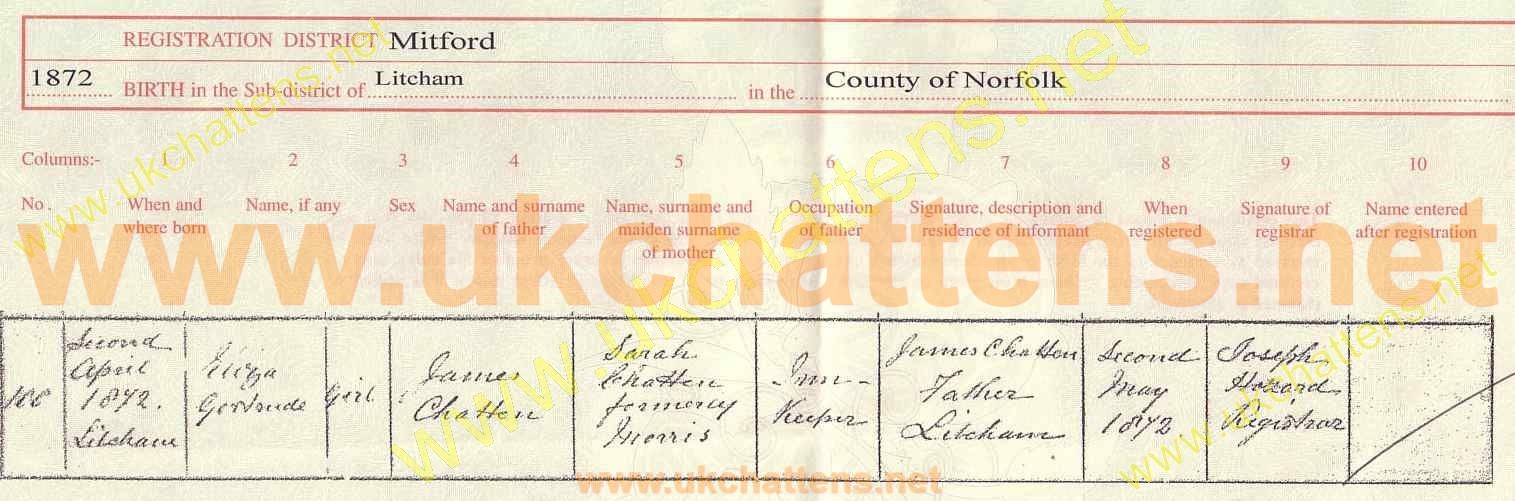 REGISTRATION DISTRICT Mitford
1872 BIRTH in the Sub-district of Litcham in the County of Norfolk
Columns:- 1 2 3 4 5 6 7 8 9 10
No. When and where born
Name, if any
Sex
Name and surname of father
Name, surname and maiden surname of mother
Occupation of father
Signature, description and residence of informant
When registered
Signature of registrar
Name entered after registration
Second
April
1872.
Litcham
Eliza
Gertrude
Girl
James
Chatten
Sarah
Chatten
formerly
Morris
Inn-
Keeper
James Chatten
Father
Litcham
Second
May
1872
Joseph
Howard
Registrar
www.ukchattens.net
www.ukchattens.net
www.ukchattens.net
www.ukchattens.net
www.ukchattens.net
www.ukchattens.net